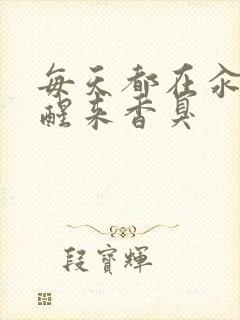 每天都在汆
醒来香臭
段寶輝